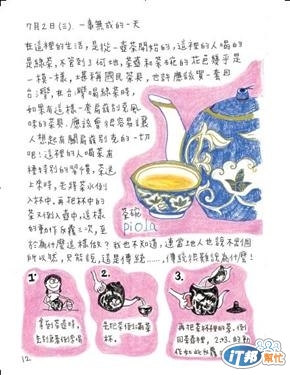 7月2日(三) 一事無成的一天
在這裡的生活，是從一壺茶開始的，這裡的人喝的
是綠茶，不管到了何地，茶壺和茶碗的花色幾乎是
一模一樣，堪稱國民茶具，也許應該買一套回
台灣，在台灣喝綠茶時，
如果有這樣一套烏茲別克風
味的茶具，應該會很容易讓
人想起有關烏茲別克的一切
吧！這裡的人喝茶有
種特別的習慣，茶送
上來時，先將茶水倒
入杯中，再把杯中的
茶又倒入壺中，這樣
的動作反覆3次，至
於為什麼這樣做？我也不知道，連當地人也說不出個
所以然，只能說，這是傳統……，傳統很難說為什麼！
茶碗
piola
1.
拿到茶壺時，
2.
先把茶倒滿茶
杯。
3.
再把茶杯裡的茶，倒
回茶壺，2,3的動
12
iT邦幫忙